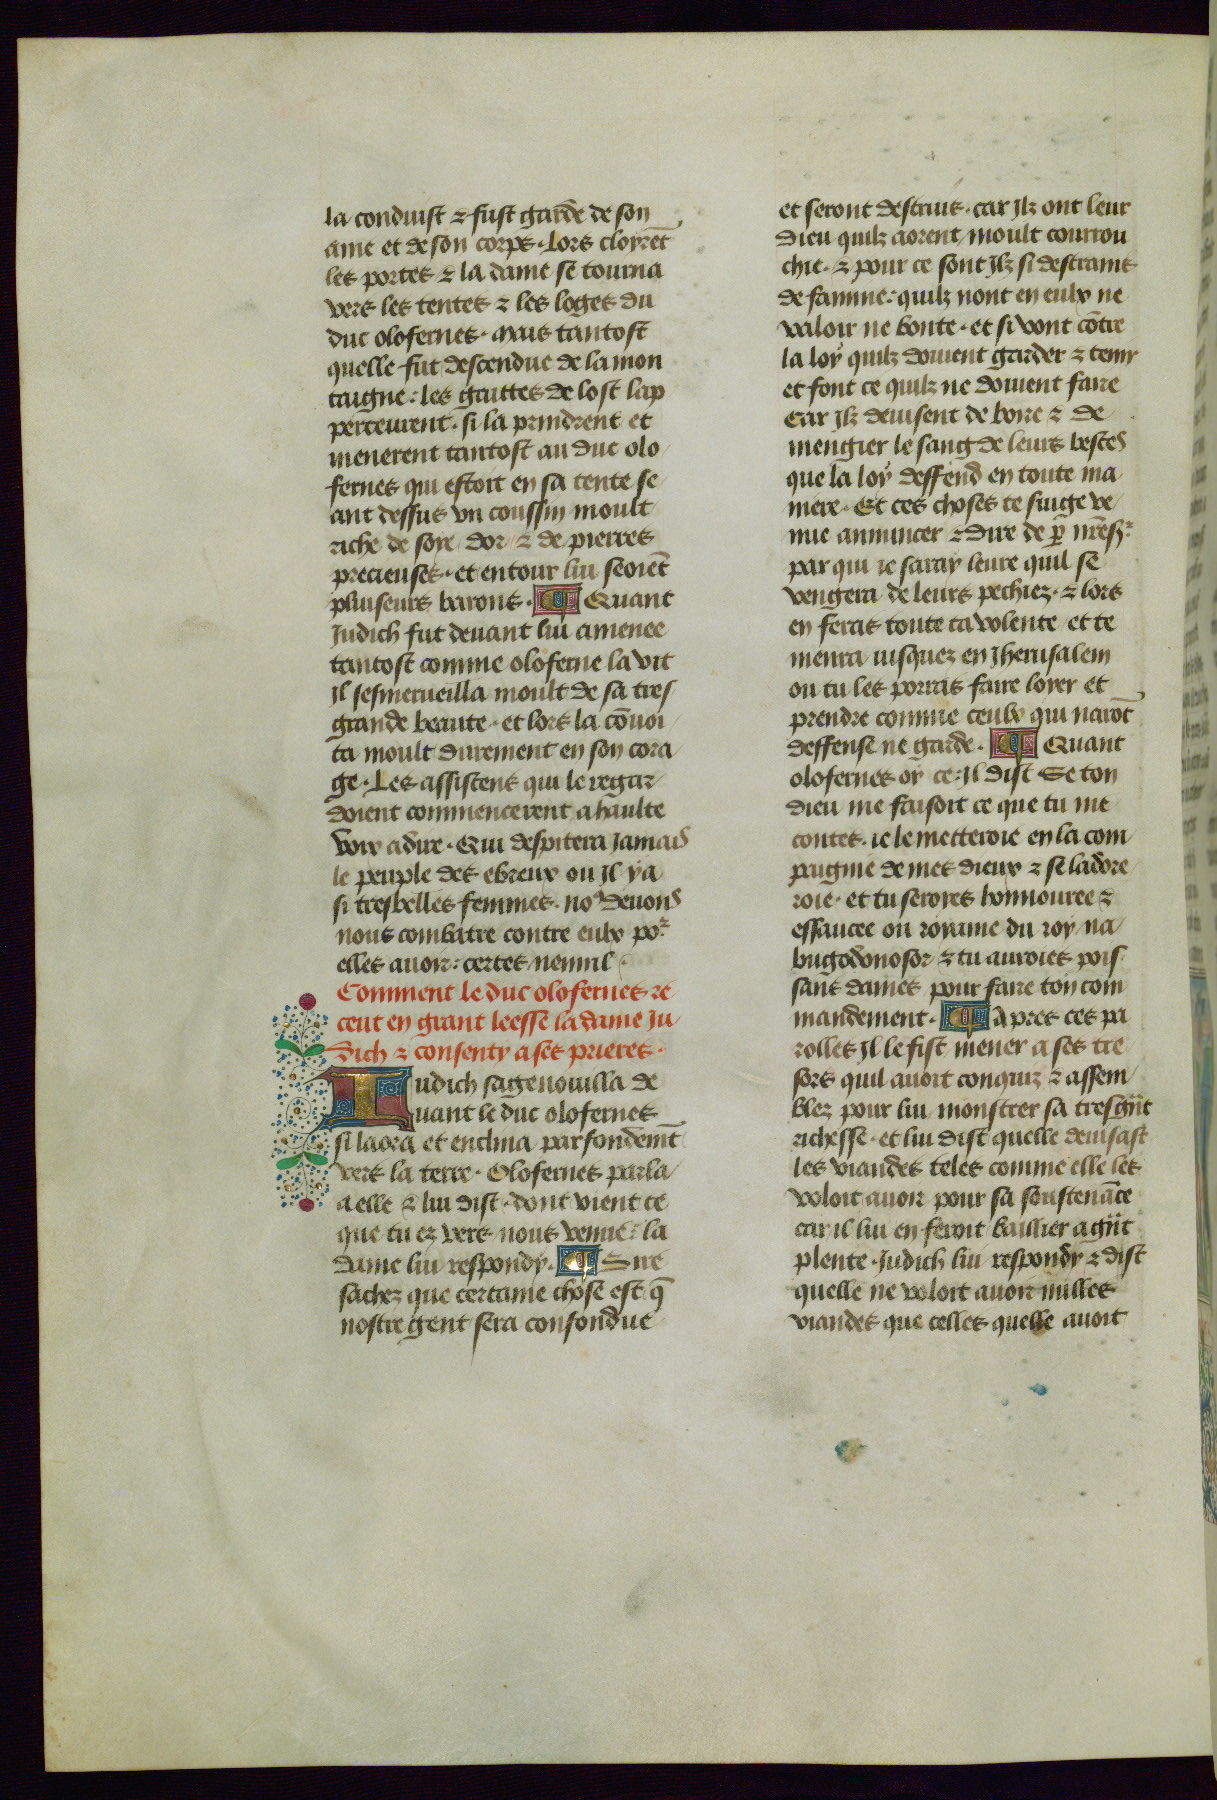 la conduist & fust garde de son
ame et de son corps. Lors cloyrēt
les portes & la dame se tourna
vers les tentes & les loges du
duc olofernes. Mais tantost
quelle fut descendue de la mon
taigne: les gaittes de lost lap
perceurent. si la prindrent et
menerent tantost au duc olo
fernes qui estoit en sa tente se
ant dessus vn coussin moult
riche de soye dor & de pierres
precieuses. et entour lui seoiēt
pluiseurs barons. Quant
Judich fut deuant lui amenee
tantost comme oloferne la vit
Jl sesmerueilla moult de sa tres
grande beaute. et lors la cōuoi
ta moult durement en son cora
ge. Les assistens qui le regar
doient commencerent a haulte
voix a dire. Qui despitera Jamais
le peuple des ebreux ou Jl ya
si tresbelles femmes. noꝰ deuons
nous combatre contre eulx poᷣ
elles auoir: certes nennil
Comment le duc olofernes re
ceut en grant leesse la dame Ju
dich & consenty a ses prieres.
Iudich sagenouilla de
uant le duc olofernes
si laora et enclina parfondemt̄
vers la terre. Olofernes parla
a elle & lui dist. dont vient ce
que tu ez vers nous venue: la
dame lui respondy. Sire
sachez que certaine chose est q̄
nostre gent sera confondue
et seront destruis. car Jlz ont leur
Dieu quilz aorent moult courrou
chie. & pour ce sont Jlz si destrains
de famine: quilz nont en eulx ne
valoir ne bonte. et si vont cōtre
la loy quilz doiuent garder & tenir
et font ce quilz ne doiuent faire
Car Jlz deuisent de boire & de
mengier le sang de leurs bestes
que la loy deffend en toute ma
niere. Et ces choses te suige ve
nue anuncer & dire de p̄ nrēsʳ
par qui ie saray leure quil se
vengera de leurs pechiez. & lors
en feras toute ta volente et te
menra iusquez en Jherusalem
ou tu les porras faire loyer et
prendre comme ceulx qui narōt
deffense ne garde. Quant
olofernes oy ce: Jl dist Se ton
dieu me faisoit ce que tu me
contes. ie le metteroie en la com
paignie de mes dieux & se ladore
roie. et tu seroyes honnouree &
essaucee ou royame du roy na
bugodonosor & tu auroies pois
sans dames pour faire ton com
mandement. Apres ces pa
rolles Jl le fist mener a ses tre
sors quil auoit conquiz & assem
blez pour lui monstrer sa tresgn̄t
richesse. et lui dist quelle deuisast
les viandes teles comme elle les
voloit auoir pour sa soustenāce
car il lui en feroit baillier a gn̄t
plente. Judich lui respondy & dist
quelle ne voloit auoir nulles
viandes que celles quelle auoit